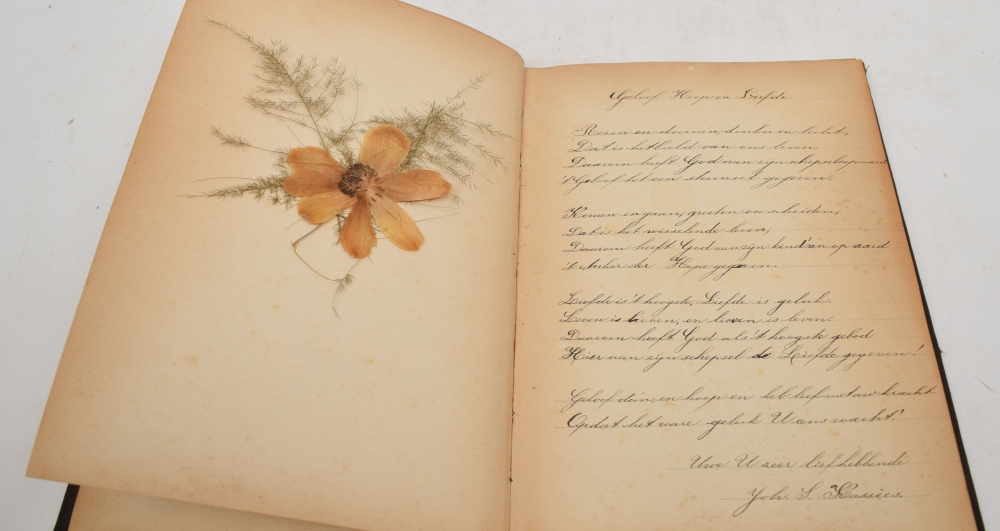 Geloof, Hoop en Liefde
Rozen en doornen, donker en licht,
Dat is het beeld van ons leven.
Daarom heeft God aan zijn schepselen
't Geloof tot een steunsel gegeven.
Komen en gaan, groeten en scheiden,
Dat is het wisselende leven,
Daarom heeft God aan zijn kind'ren op aard
't Anker der Hope gegeven.
Liefde is 't hoogste, Liefde is geluk.
Leven is leeren, en leeren is leven.
Daarom heeft God als 't hoogste gebod
Hier aan zijn schepsel de Liefde gegeven!
Geloof dan, en hoop en heb lief met uw kracht
Opdat het ware geluk U eens wacht!
Uwe U zeer liefhebbende
Joh. S.